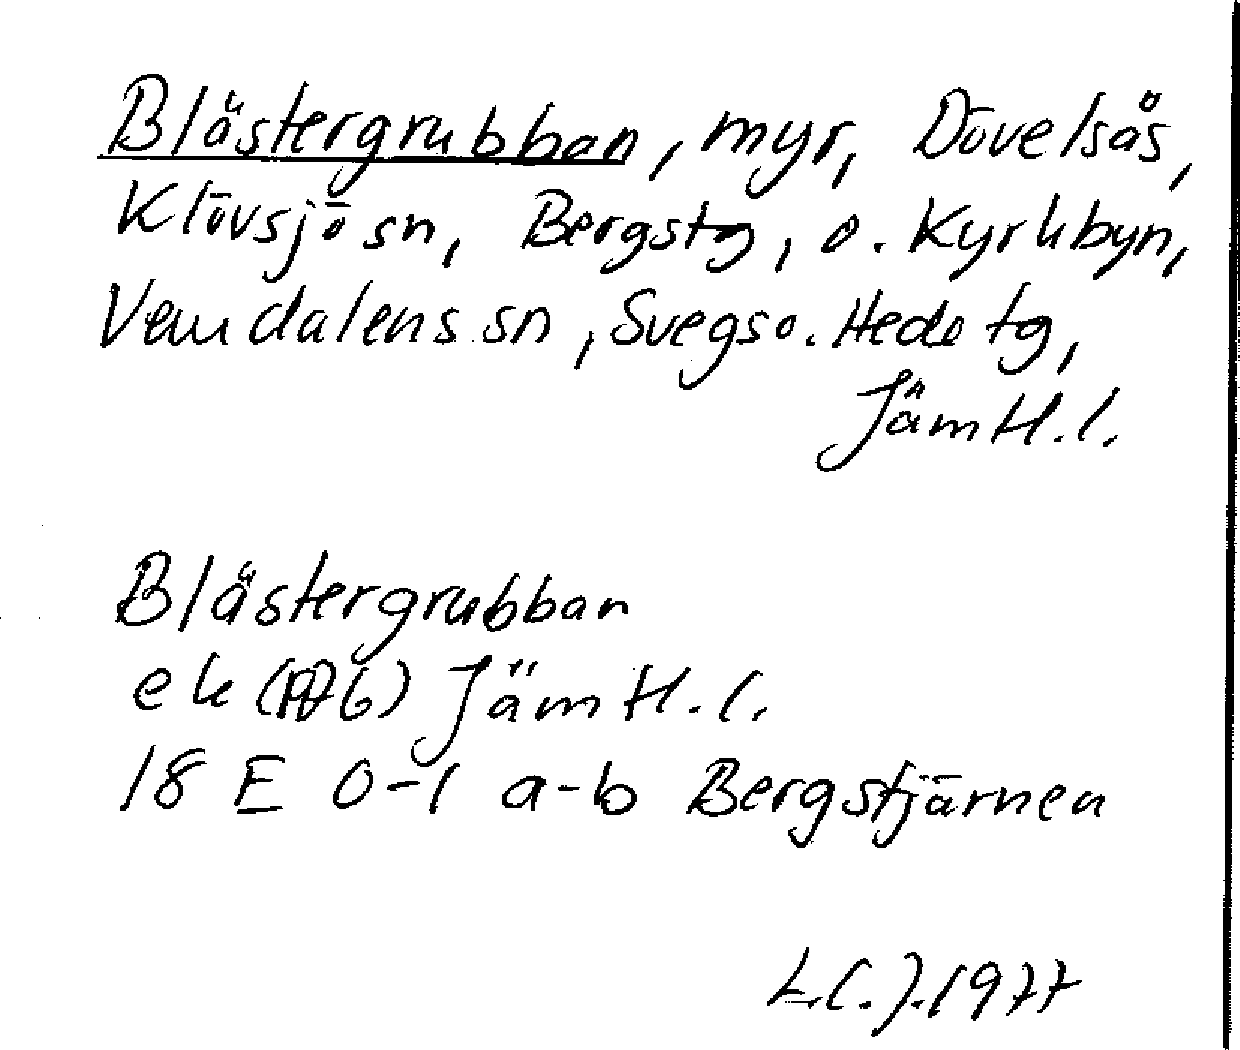 Blästergrubban, myr, Dövelsås,
Klövsjö sn, Bergs tg, o. Kyrkbyn,
Vemdalens sn, Svegs o. Hede tg,
Jämtl. l.
Blästergrubban
ek Jämtl. l.
18 E 0-1 a-b Bergstjärnen
L.C.J. 1977